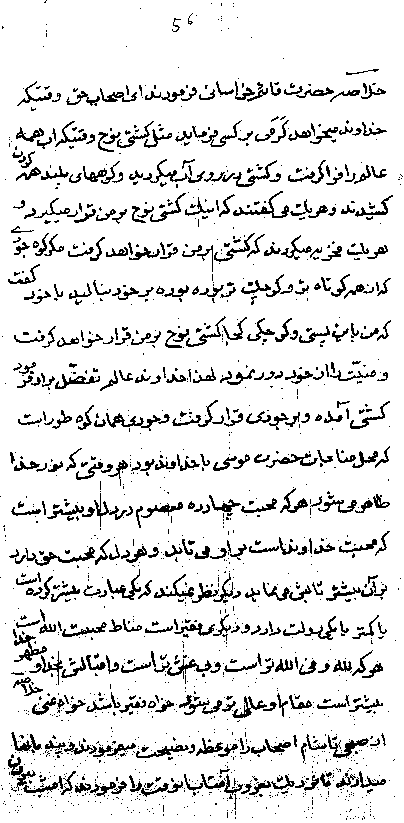 ۵۶
خلاصه حضرت قائم خراسانی فرمودند ای اصحاب حق وقتیکه
خداوند میخواهد کرمی بر کسی فرماید مثل کشتی نوح وقتیکه آب همه
عالم را فرا گرفت و کشتی بر روی آب میگردید و کوههای بلند همه گردن
کشیدند و هر یک می گفتند که اینک کشتی نوح بر من قرار میگیرد و
هر یک فخریه میکردند که کشتی بر من قرار خواهد گرفت مگر کوه جودی
که از همه کوتاه تر و کوچک تر بوده بر خود نبالید با خود گفت
که من باین پستی و کوچکی کجا کشتی نوح بر من قرار خواهد گرفت
و منیت را از خود دور نمود لهذا خداوند عالم تفضل براو فرمود
کشتی آمده و بر جودی قرار گرفت و جودی همان کوه طور است
که محل مناجات حضرت موسی با خداوند بود هر وقتی که نور خدا
ظاهر می شود هر که محبت چهارده معصوم در دل او بیشتر است
که محبت خداوند است بر او می تابد و هر دل که محبت حق دارد
بر آن بیشتر تابش می نماید دیگر نظر نمیکند که یکی عبادت بیشتر کرده است
یا کمتر یا یکی دولت دارد و دیگری فقیر است مناط محبت الله است
هر که لله و فی الله تر است و بی غش تر است و اقبالش بخدا و مظهر خدا
بیشتر است مقام او عالی تر می شود خواه فقیر باشد خواه غنی خلاصه
از صبح تا شام اصحاب را موعظه و نصیحت میفرمودند و
تا نزدیک بغروب آفتاب آنوقت را فرمودند که امشب